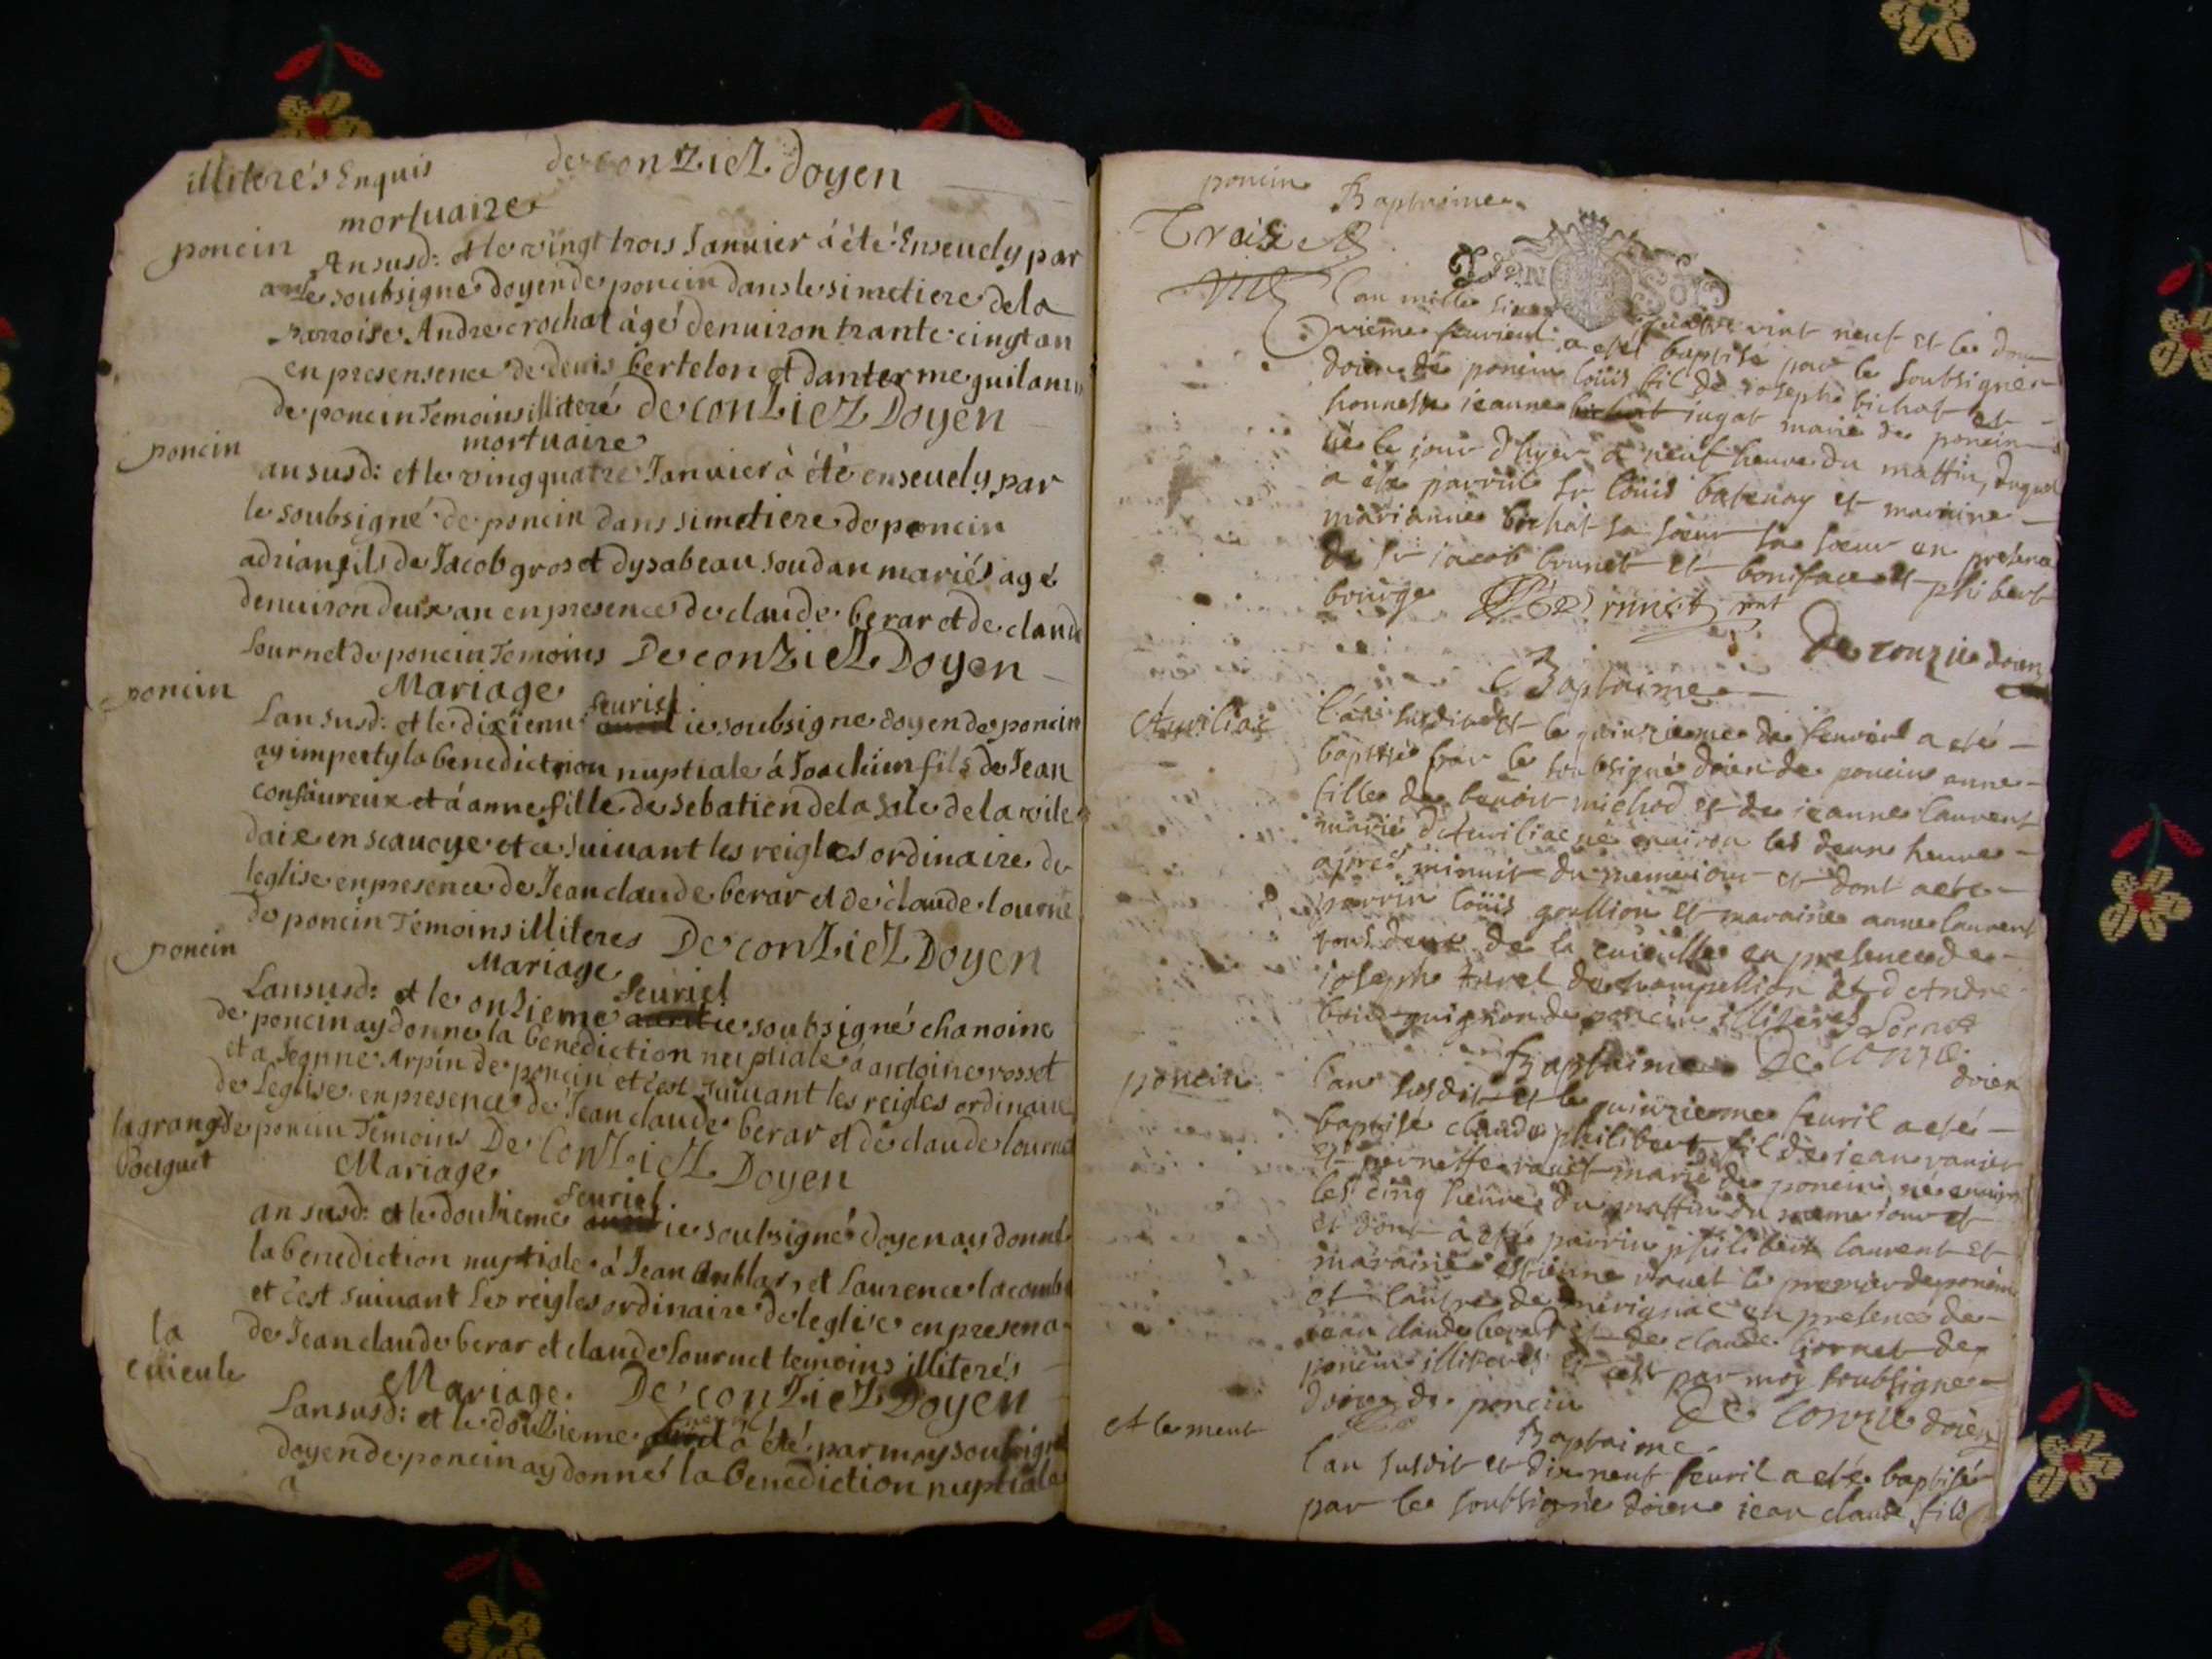 illiterés Enquis de conziez doyen
mortuaire
poncin
An susd: et le vingt trois Januier à été Enseuely par
le soubsigné doyen de poncin dans le simetiere de la
parroise Andre crochat âgé denuiron trante cingt an
en presensence de denis bertelon et danterme guilaum
de poncin Temoins illiteré De conziez Doyen
mortuaire
poncin
an susd: et le ving quatre Januier à été enseuely par
le soubsigné de poncin dans simetiere de poncin
adrian fils de Jacob gros et dysabeau soudan mariés agé
denuiron deux an en presence de claude berar et de claude
Lournet de poncin Temoins De conziez Doyen
Mariage
poncin
Lan susd: et le dixieme feuriel ie soubsigne doyen de poncin
ay imparty la benediction nuptiale á Joachim fils de Jean
et á anne fille de sebatien de la sale de la vile
daix en scauoye et ce suiuant les reigles ordinaire de
leglise en presence de Jean claude berar et de claude lourne
de poncin Témoins illiteres De conziez Doyen
Mariage
poncin
Lan susd: et le onzieme feuriel ie soubsigné chanoine
de poncin ay donne la benediction nuptiale à antoine rosset
et a Jeanne Arpin de poncin et c'est suiuant les reigles ordinaire
de Leglise en presence de Jean claude berar et de claude lournet
de poncin Temoins De Conziez Doyen
la grange
Mariage
an susd: et le douzieme feuriel ie soubsigné doyen ay donné
la benediction nuptiale à Jean et Laurence lacombe
et c'est suiuant les reigles ordinaire de leglise en presence
de Jean claude berar et claude Lournet temoins illiterés
la
cuieule
Mariage De conziez Doyen
Lan susd: et le douzieme à été par moy soubsigné
doyen de poncin ay donné la benediction nuptiale
à
poncin Baptaime
Trois
l'an mille six quatre vint neuf et le dou
zieme feuriel a esté baptisé par le soubsigné
doien de poncin loüis fil de ioseph bichat et
honneste ieanne iugat marié de poncin
né le iour d'hyer a neuf heure du mattin, duquel
a esté parrin sr loüis batenay et maraine
marianne bichat sa soeur sa soeur en presence
de sr iacob brunet et boniface et phibert
bourge
De conzie doien
Baptaime
l'an susdit et le quinzieme de feuriel a esté
baptisé par le soubsigné doien de poncin anne
fille de benoit michod et de ieanne laurent
marié né enuiron les deux heures
apres minuit du meme iour et dont a esté
parrin loüis goullion et maraine anne laurent
tous deux de la cuieulle en presence de
ioseph turel de champellion et d'Andre
bourguignon de poncin illiterés
Baptaime De conzie
doien
poncin
l'an susdit et le quinzieme feuril a esté
baptisé claude philibert fil de iean ranier
et pernette rauet marié de poncin né enuiron
les cinq heures du mattin du meme iour et
et dont a esté parrin philibert laurent et
maraine estienne rauet le premier de poncin
et l'autre de merignac en presence de
iean claude berard et de claude liornet de
poncin illiterés et c'est par moy soubsigné
doien de poncin De conzie doien
Baptaime
l'an susdit et dix neuf feuril a esté baptisé
par le soubsigné doien iean claude fils